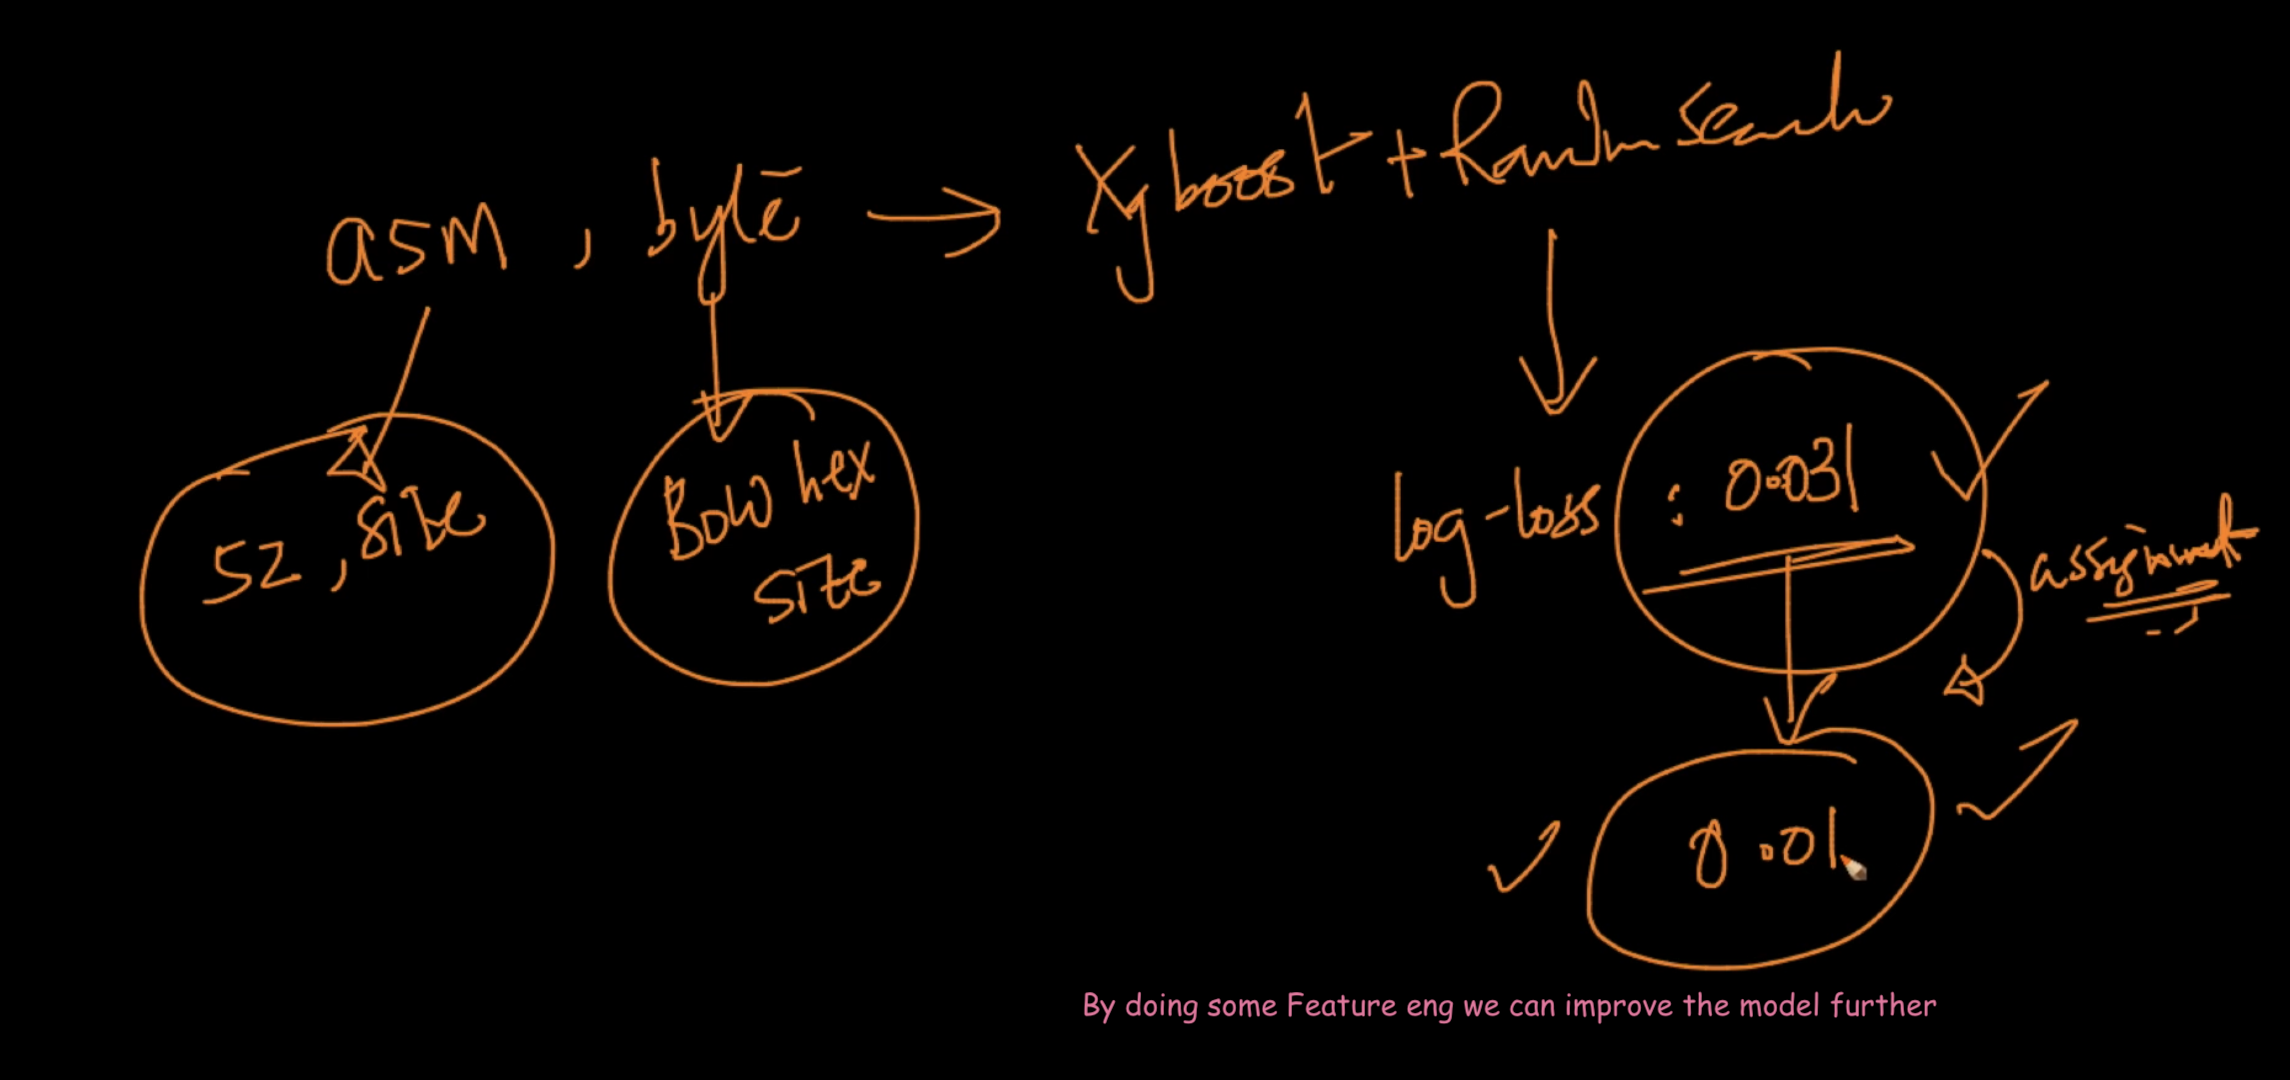 asm , byte → Xgboost + Random Search
52 , size
Bow hex
size
log-loss : 0.031
assignment
0.01
By doing some Feature eng we can improve the model further